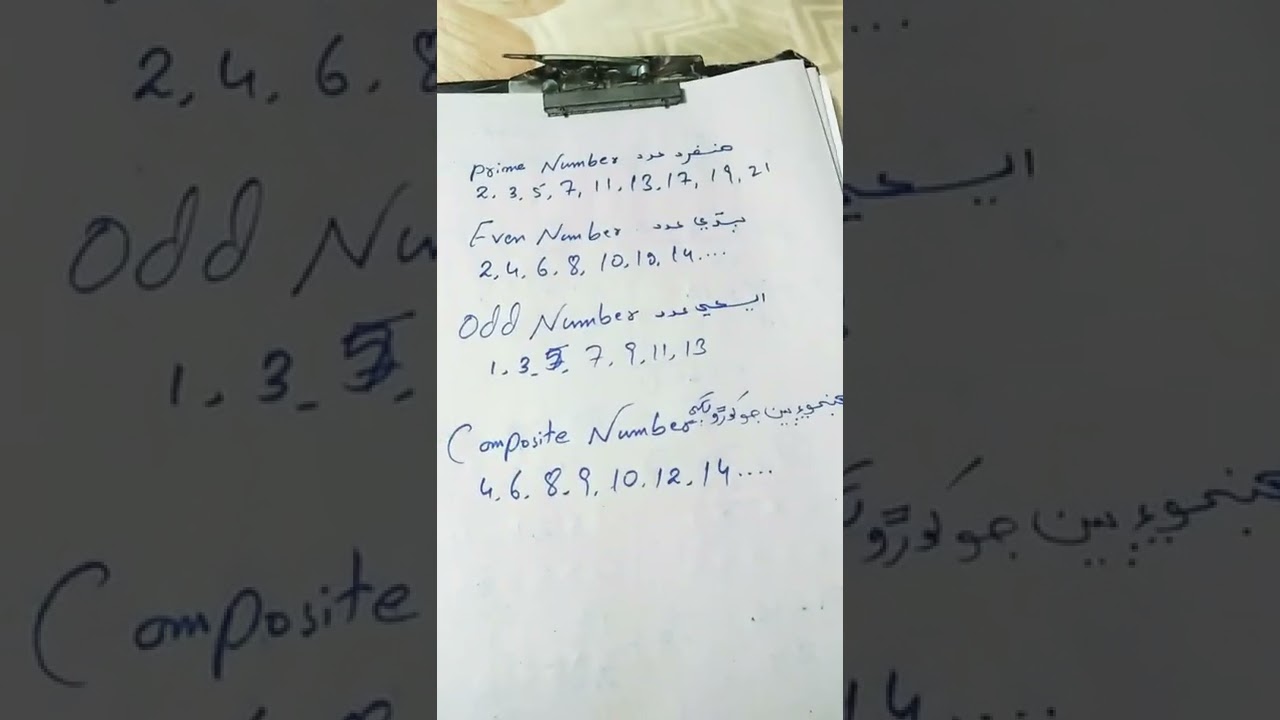 Prime Number منفرد عدد
2, 3, 5, 7, 11, 13, 17, 19, 21
Even Number ٻڌي عدد
2, 4, 6, 8, 10, 10, 14....
Odd Number عدد
1, 3, 5, 7, 9, 11, 13
Composite Number جو
4, 6, 8, 9, 10, 12, 14....